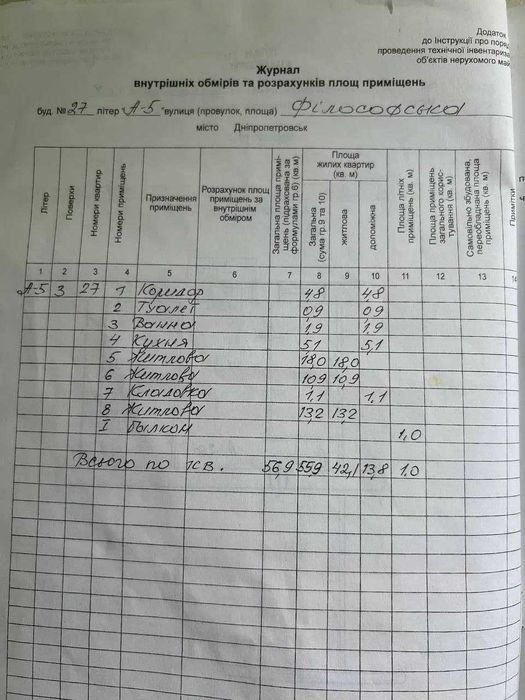 Додаток
до Інструкції про поряд
проведення технічної інвентариза
об'єктів нерухомого май
Журнал
внутрішніх обмірів та розрахунків площ приміщень
буд. № 27 літер "А-5" вулиця (провулок, площа) Філософська
місто Дніпропетровськ
Літер
Поверхи
Номери квартир
Номери приміщень
Призначення приміщень
Розрахунок площ приміщень за внутрішнім обміром
Загальна площа приміщень (підрахована за формулами гр.6) (кв м)
Площа жилих квартир (кв. м)
Загальна (сума гр. 9 та 10)
житлова
допоміжна
Площа літніх приміщень (кв. м)
Площа приміщень загального користування (кв. м)
Самовільно збудована, переобладнана площа приміщень (кв. м)
Примітки
1 2 3 4 5 6 7 8 9 10 11 12 13 14
А-5 3 27 1 Коридор 4,8 4,8
2 Туалет 0,9 0,9
3 Ванна 1,9 1,9
4 Кухня 5,1 5,1
5 Житлова 18,0 18,0
6 Житлова 10,9 10,9
7 Кладовка 1,1 1,1
8 Житлова 13,2 13,2
I Балкон 1,0
Всього по кв. 56,9 55,9 42,1 13,8 1.0